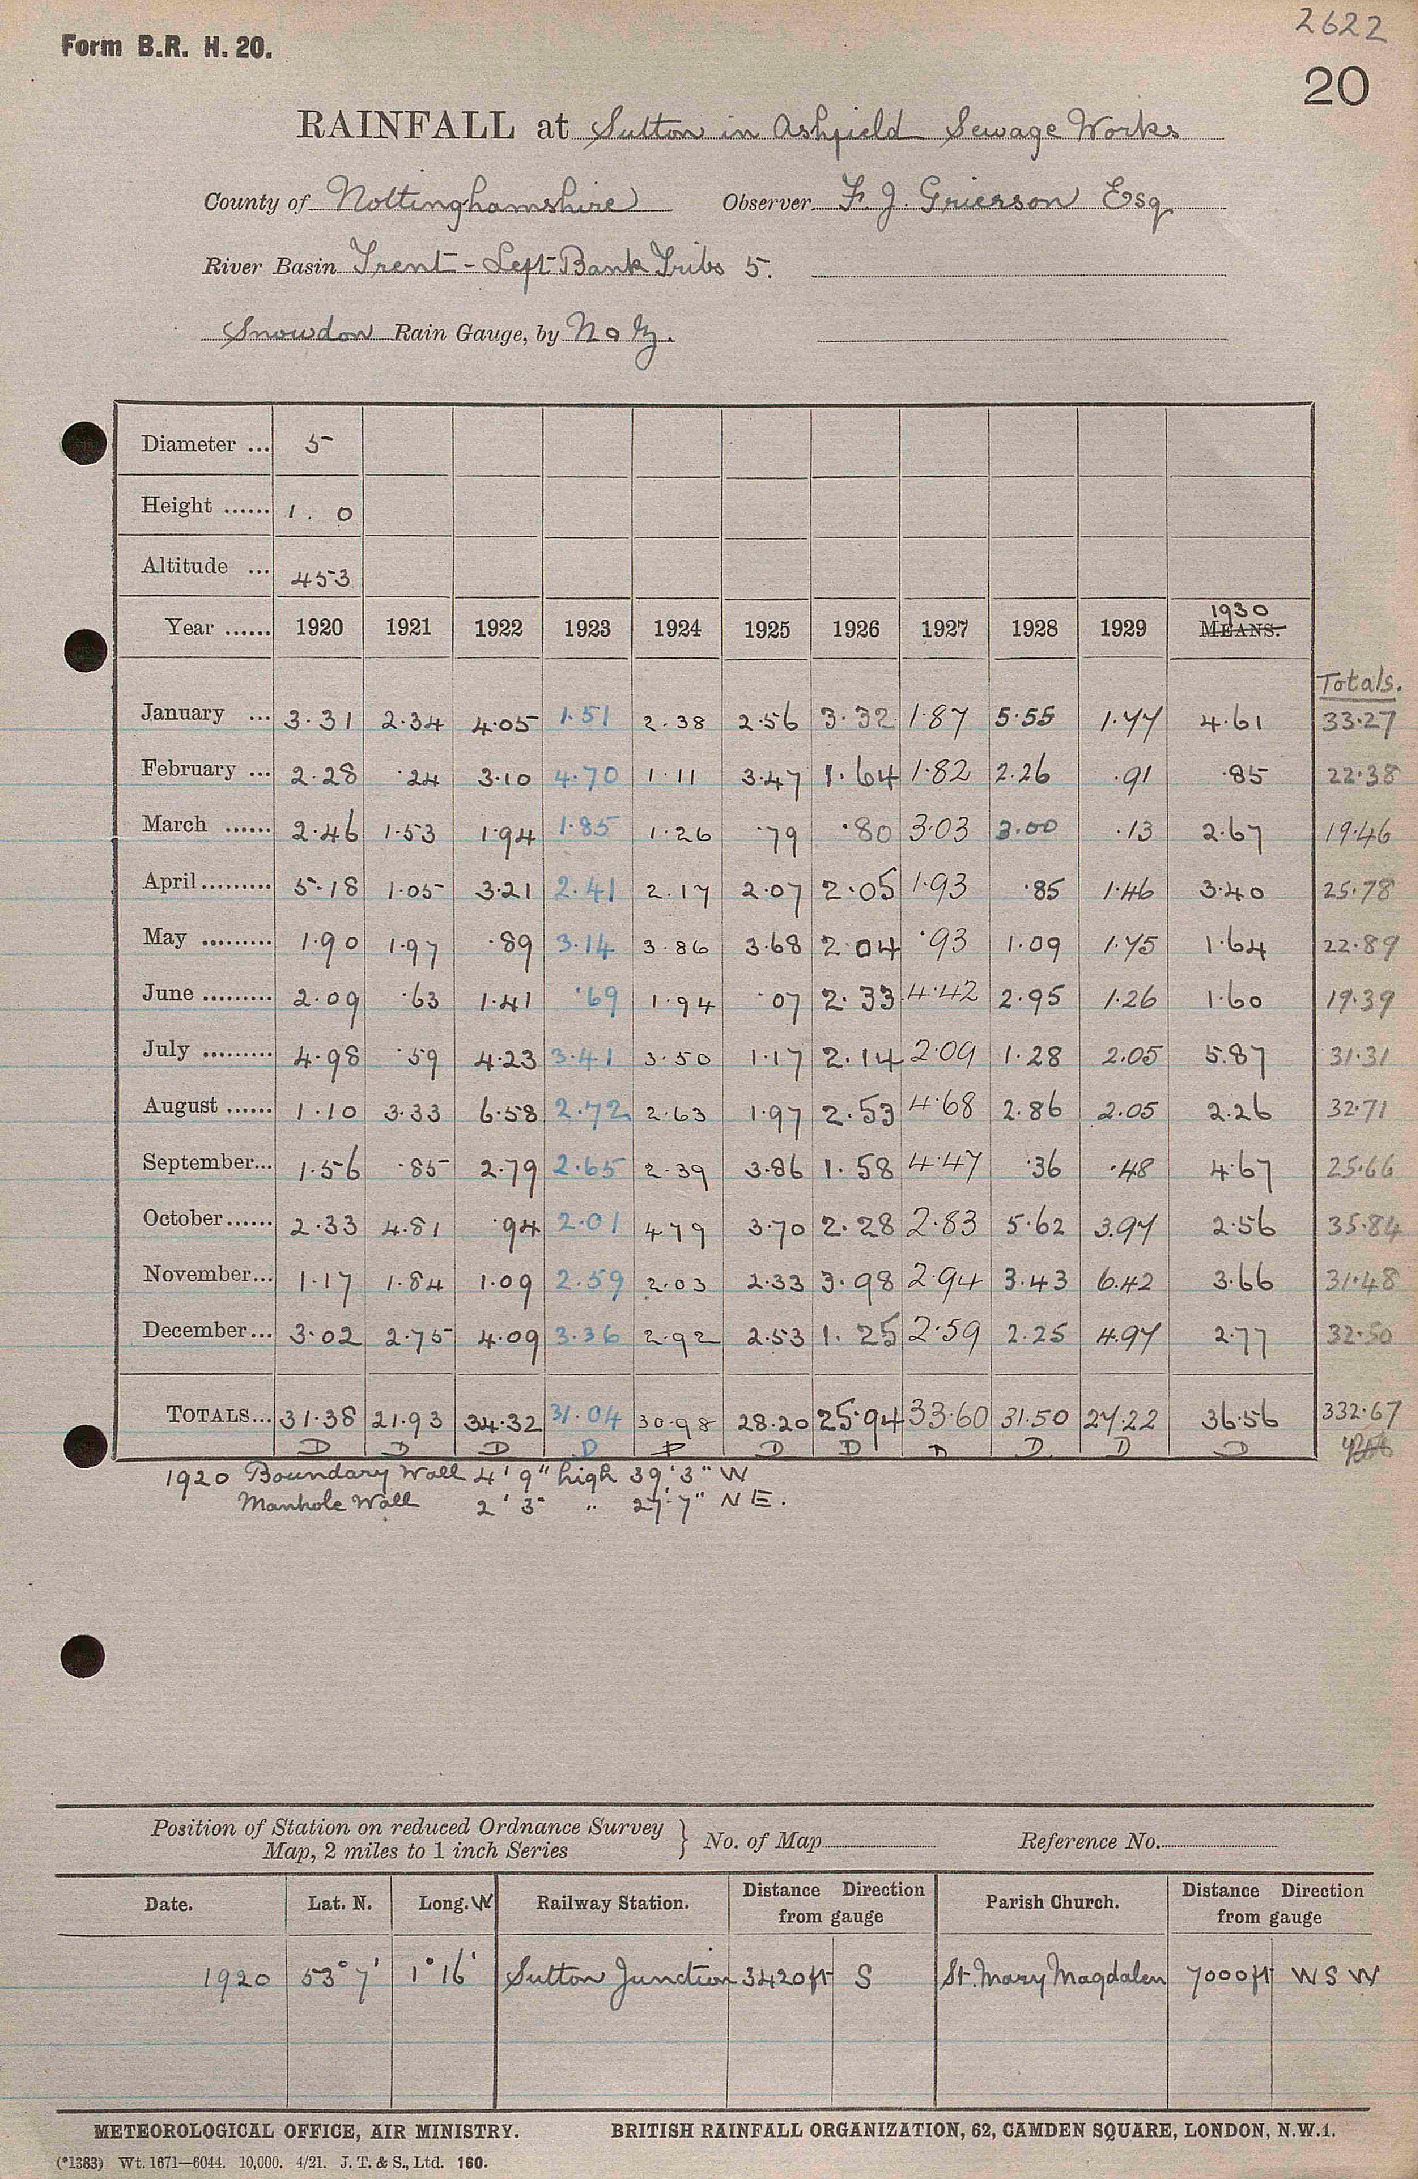 2622
Form B.R. H. 20.
20
RAINFALL at Sutton in Ashfield Sewage Works
County of Nottinghamshire Observer F. J. Grierson Esq
River Basin Trent - Left Bank Tribs 5.
Snowdon Rain Gauge, by N & Z.
Diameter ... 5
Height ...... 1. 0
Altitude ... 453
Year ...... 1920 1921 1922 1923 1924 1925 1926 1927 1928 1929 1930 MEANS.
Totals.
January ... 3.31 2.34 4.05 1.51 2.38 2.56 3.32 1.87 5.55 1.77 4.61 33.27
February ... 2.28 .24 3.10 4.70 1.11 3.47 1.64 1.82 2.26 .91 .85 22.38
March ...... 2.46 1.53 1.94 1.85 1.26 .79 .80 3.03 3.00 .13 2.67 19.46
April ......... 5.18 1.05 3.21 2.41 2.17 2.07 2.05 1.93 .85 1.46 3.40 25.78
May ......... 1.90 1.97 .89 3.14 3 86 3.68 2 04 .93 1.09 1.75 1.64 22.89
June ......... 2.09 .63 1.41 .69 1.94 .07 2.33 4.42 2.95 1.26 1.60 19.39
July ......... 4.98 .59 4.23 3.41 3.50 1.17 2.14 2.09 1.28 2.05 5.87 31.31
August ...... 1.10 3.33 6.58 2.72 2.63 1.97 2.53 4.68 2.86 2.05 2.26 32.71
September... 1.56 .85 2.79 2.65 2.39 3.86 1.58 4.47 .36 .48 4.67 25.66
October...... 2.33 4.81 .94 2.01 4 79 3.70 2.28 2.83 5.62 3.97 2.56 35.84
November... 1.17 1.84 1.09 2.59 2.03 2.33 3.98 2.94 3.43 6.42 3.66 31.48
December... 3.02 2.75 4.09 3.36 2.92 2.53 1.25 2.59 2.25 4.97 2.77 32.50
TOTALS... 31.38 21.93 34.32 31.04 30.98 28.20 25.94 33.60 31.50 27.22 36.56 332.67
D D D D D D D D D D D
1920 Boundary Wall 4' 9" high 39' 3" W
Manhole Wall 2' 3" " 27' 7" N E.
Position of Station on reduced Ordnance Survey
Map, 2 miles to 1 inch Series } No. of Map Reference No.
Date. Lat. N. Long. W Railway Station. Distance Direction from gauge Parish Church. Distance Direction from gauge
1920 53° 7' 1° 16' Sutton Junction 3420 ft S St. Mary Magdalen 7000 ft W S W
METEOROLOGICAL OFFICE, AIR MINISTRY. BRITISH RAINFALL ORGANIZATION, 62, CAMDEN SQUARE, LONDON, N.W.1.
(*1383) Wt. 1671—6044. 10,000. 4/21. J. T. & S., Ltd. 160.